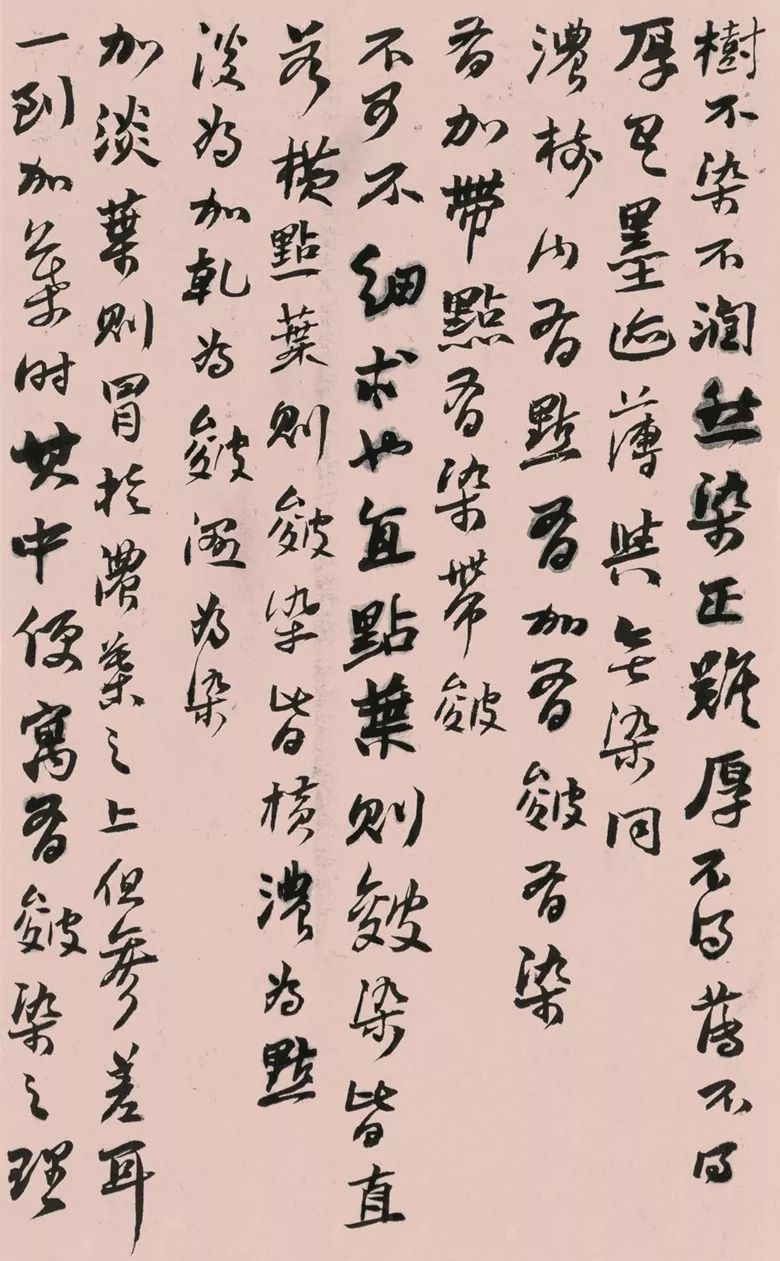 樹不染不潤然染正難厚不得薄不得
厚墨迹薄與無染同
濃樹內有點有加有皴有染
有加帶點有染帶皴
不可不細求也直點葉則皴染皆直
若橫點葉則皴染皆橫濃為點
淡為加乾為皴濕為染
加淡葉則冒於濃葉之上但參差耳
一到加葉時其中便寓有皴染之理